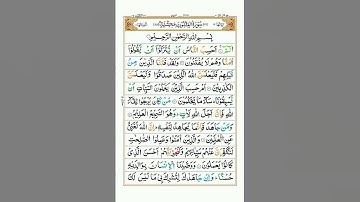 بِسْمِ اللّٰهِ الرَّحْمٰنِ الرَّحِيْمِ
الٓمّٓ ۝ اَحَسِبَ النَّاسُ اَنْ يُّتْرَكُوْٓا اَنْ يَّقُوْلُوْٓا
اٰمَنَّا وَهُمْ لَا يُفْتَنُوْنَ ۝ وَلَقَدْ فَتَنَّا الَّذِيْنَ مِنْ
قَبْلِهِمْ فَلَيَعْلَمَنَّ اللّٰهُ الَّذِيْنَ صَدَقُوْا وَلَيَعْلَمَنَّ
الْكٰذِبِيْنَ ۝ اَمْ حَسِبَ الَّذِيْنَ يَعْمَلُوْنَ السَّيِّاٰتِ اَنْ
يَّسْبِقُوْنَا سَآءَ مَا يَحْكُمُوْنَ ۝ مَنْ كَانَ يَرْجُوْا لِقَآءَ
اللّٰهِ فَاِنَّ اَجَلَ اللّٰهِ لَاٰتٍ وَهُوَ السَّمِيْعُ الْعَلِيْمُ ۝
وَمَنْ جَاهَدَ فَاِنَّمَا يُجَاهِدُ لِنَفْسِهٖ اِنَّ اللّٰهَ لَغَنِيٌّ
عَنِ الْعٰلَمِيْنَ ۝ وَالَّذِيْنَ اٰمَنُوْا وَعَمِلُوا الصّٰلِحٰتِ
لَنُكَفِّرَنَّ عَنْهُمْ سَيِّاٰتِهِمْ وَلَنَجْزِيَنَّهُمْ اَحْسَنَ الَّذِيْ
كَانُوْا يَعْمَلُوْنَ ۝ وَوَصَّيْنَا الْاِنْسَانَ بِوَالِدَيْهِ
حُسْنًا وَاِنْ جَاهَدٰكَ لِتُشْرِكَ بِيْ مَا لَيْسَ لَكَ